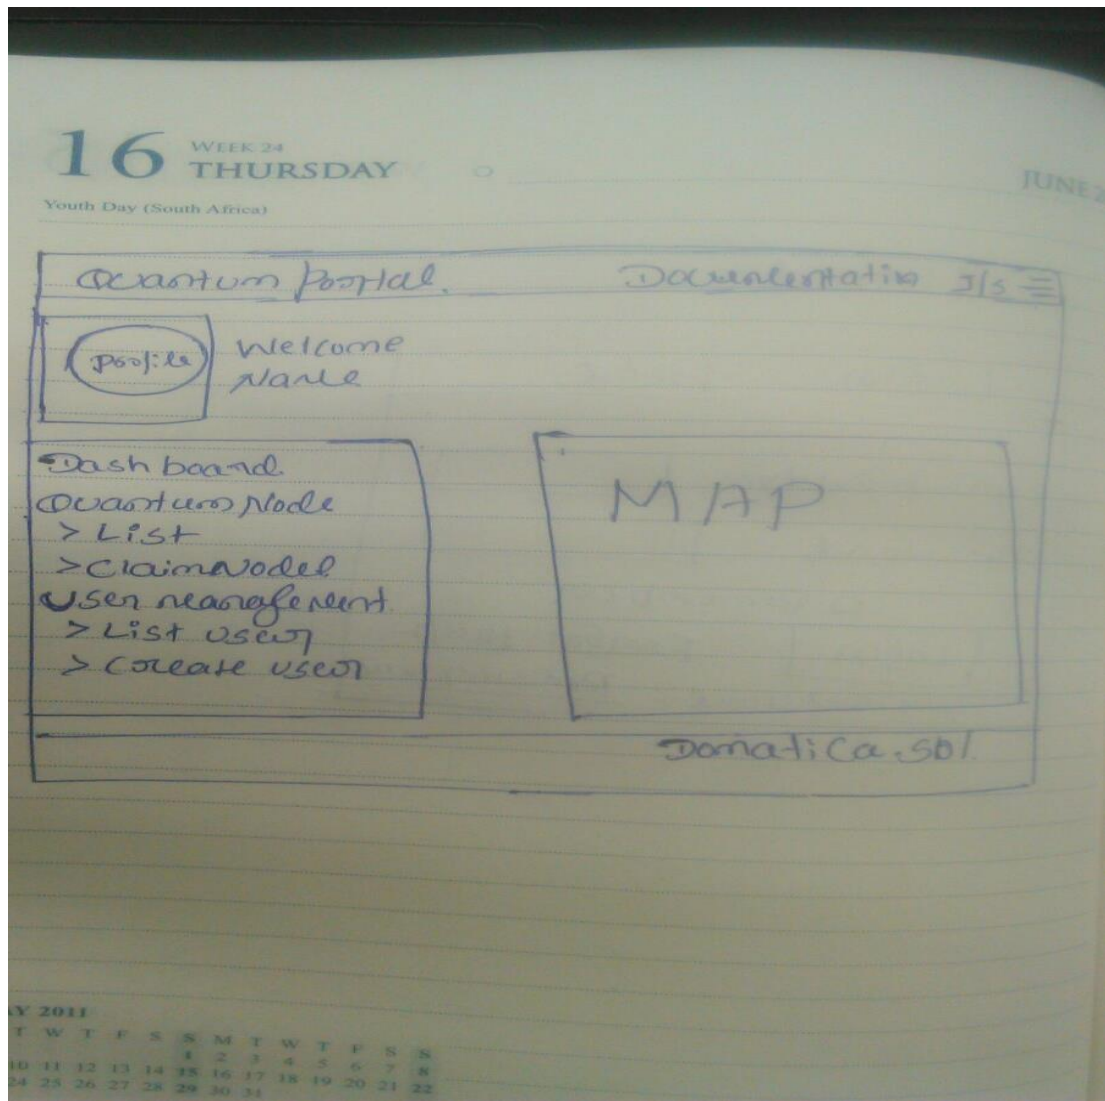 16 WEEK 24
THURSDAY
JUNE 2
Youth Day (South Africa)
Quantum Portal. Documentation I/s
Profile
Welcome
Name
Dashboard
Quantum Node
> List
> Claim Nodel
User management
> List user
> Create user
MAP
Domatica.sol
AY 2011
T W T F S S M T W T F S S
1 2 3 4 5 6 7 8
10 11 12 13 14 15 16 17 18 19 20 21 22
24 25 26 27 28 29 30 31